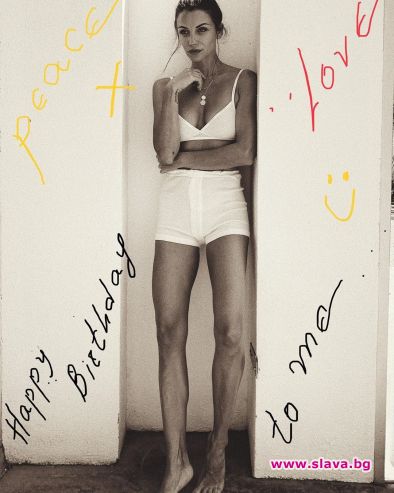 peace
+
Love
:)
Happy
Birthday
to me
www.slava.bg